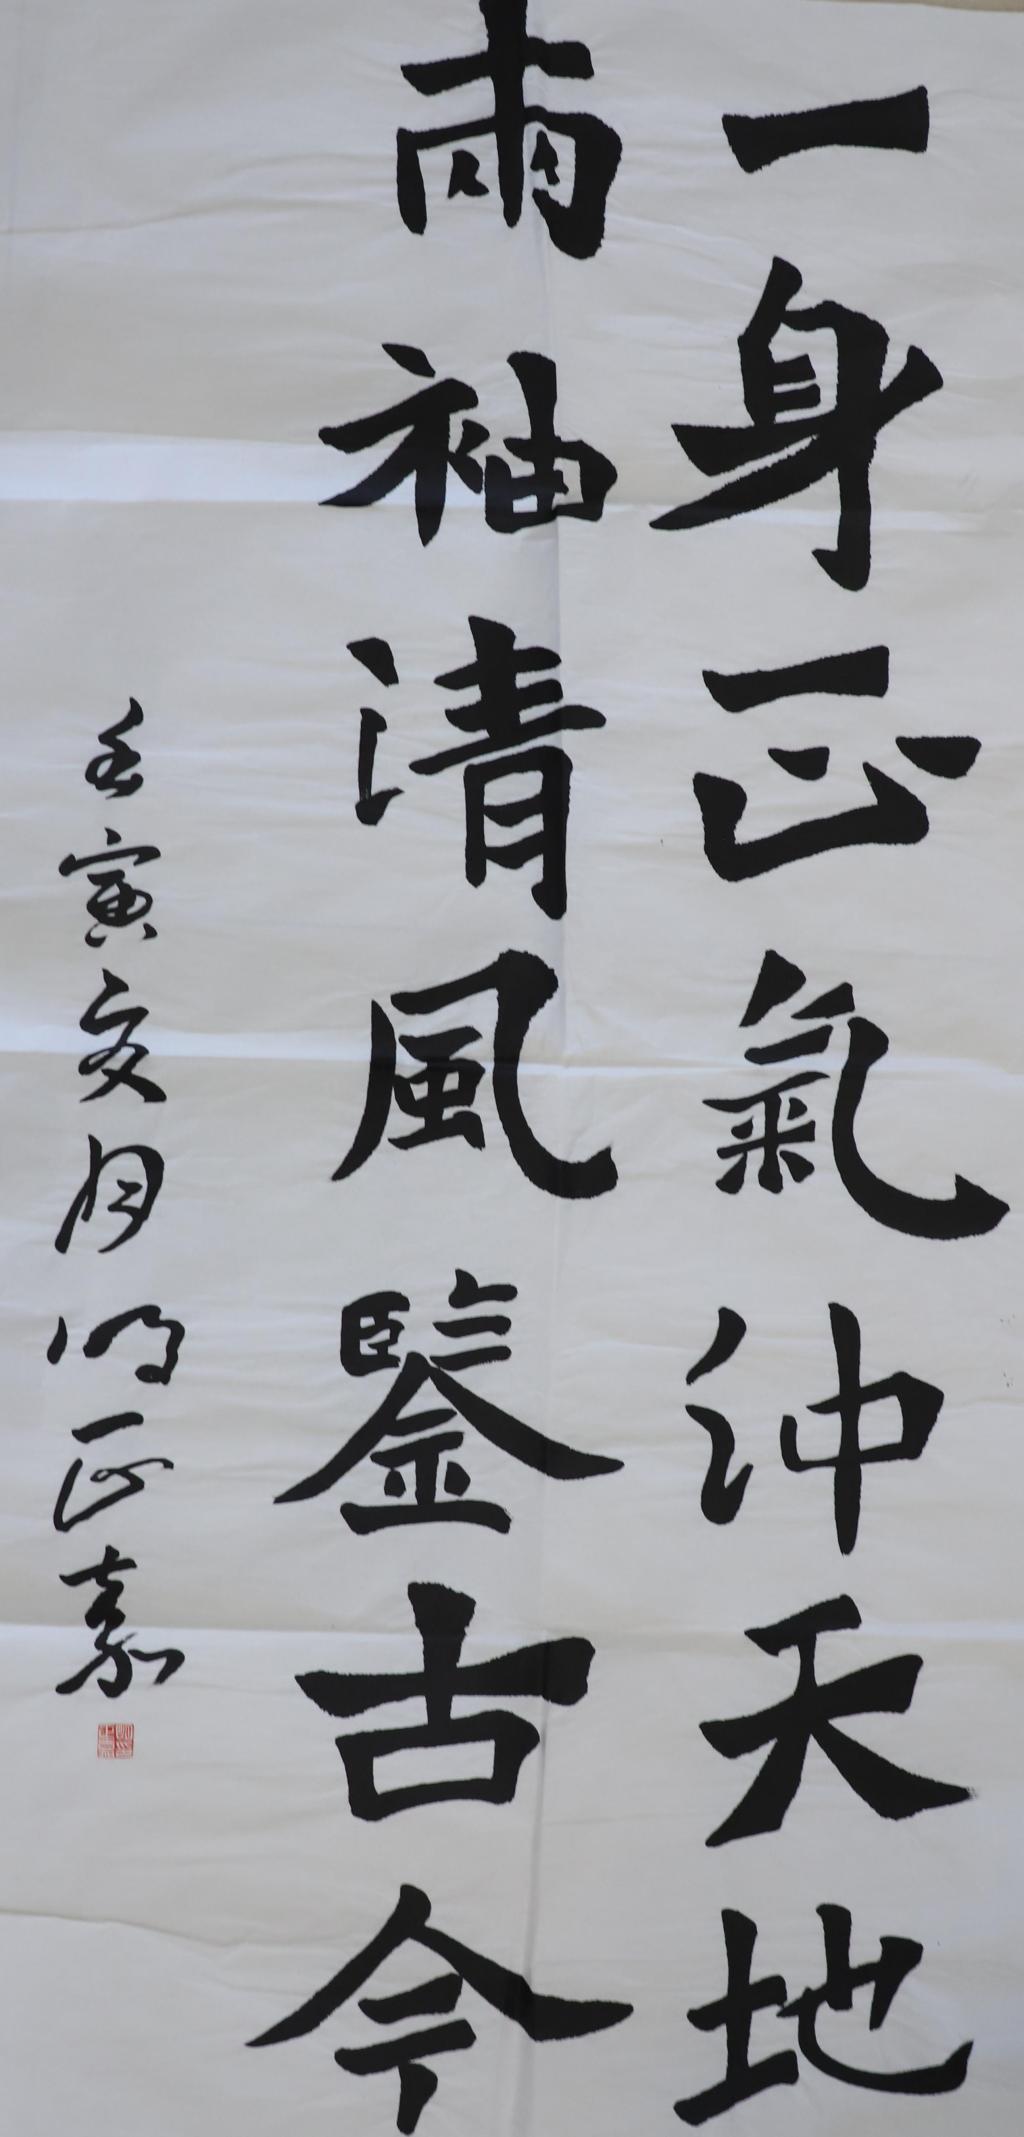 一身正氣沖天地
兩袖清風鑒古今
壬寅夏月明正嘉